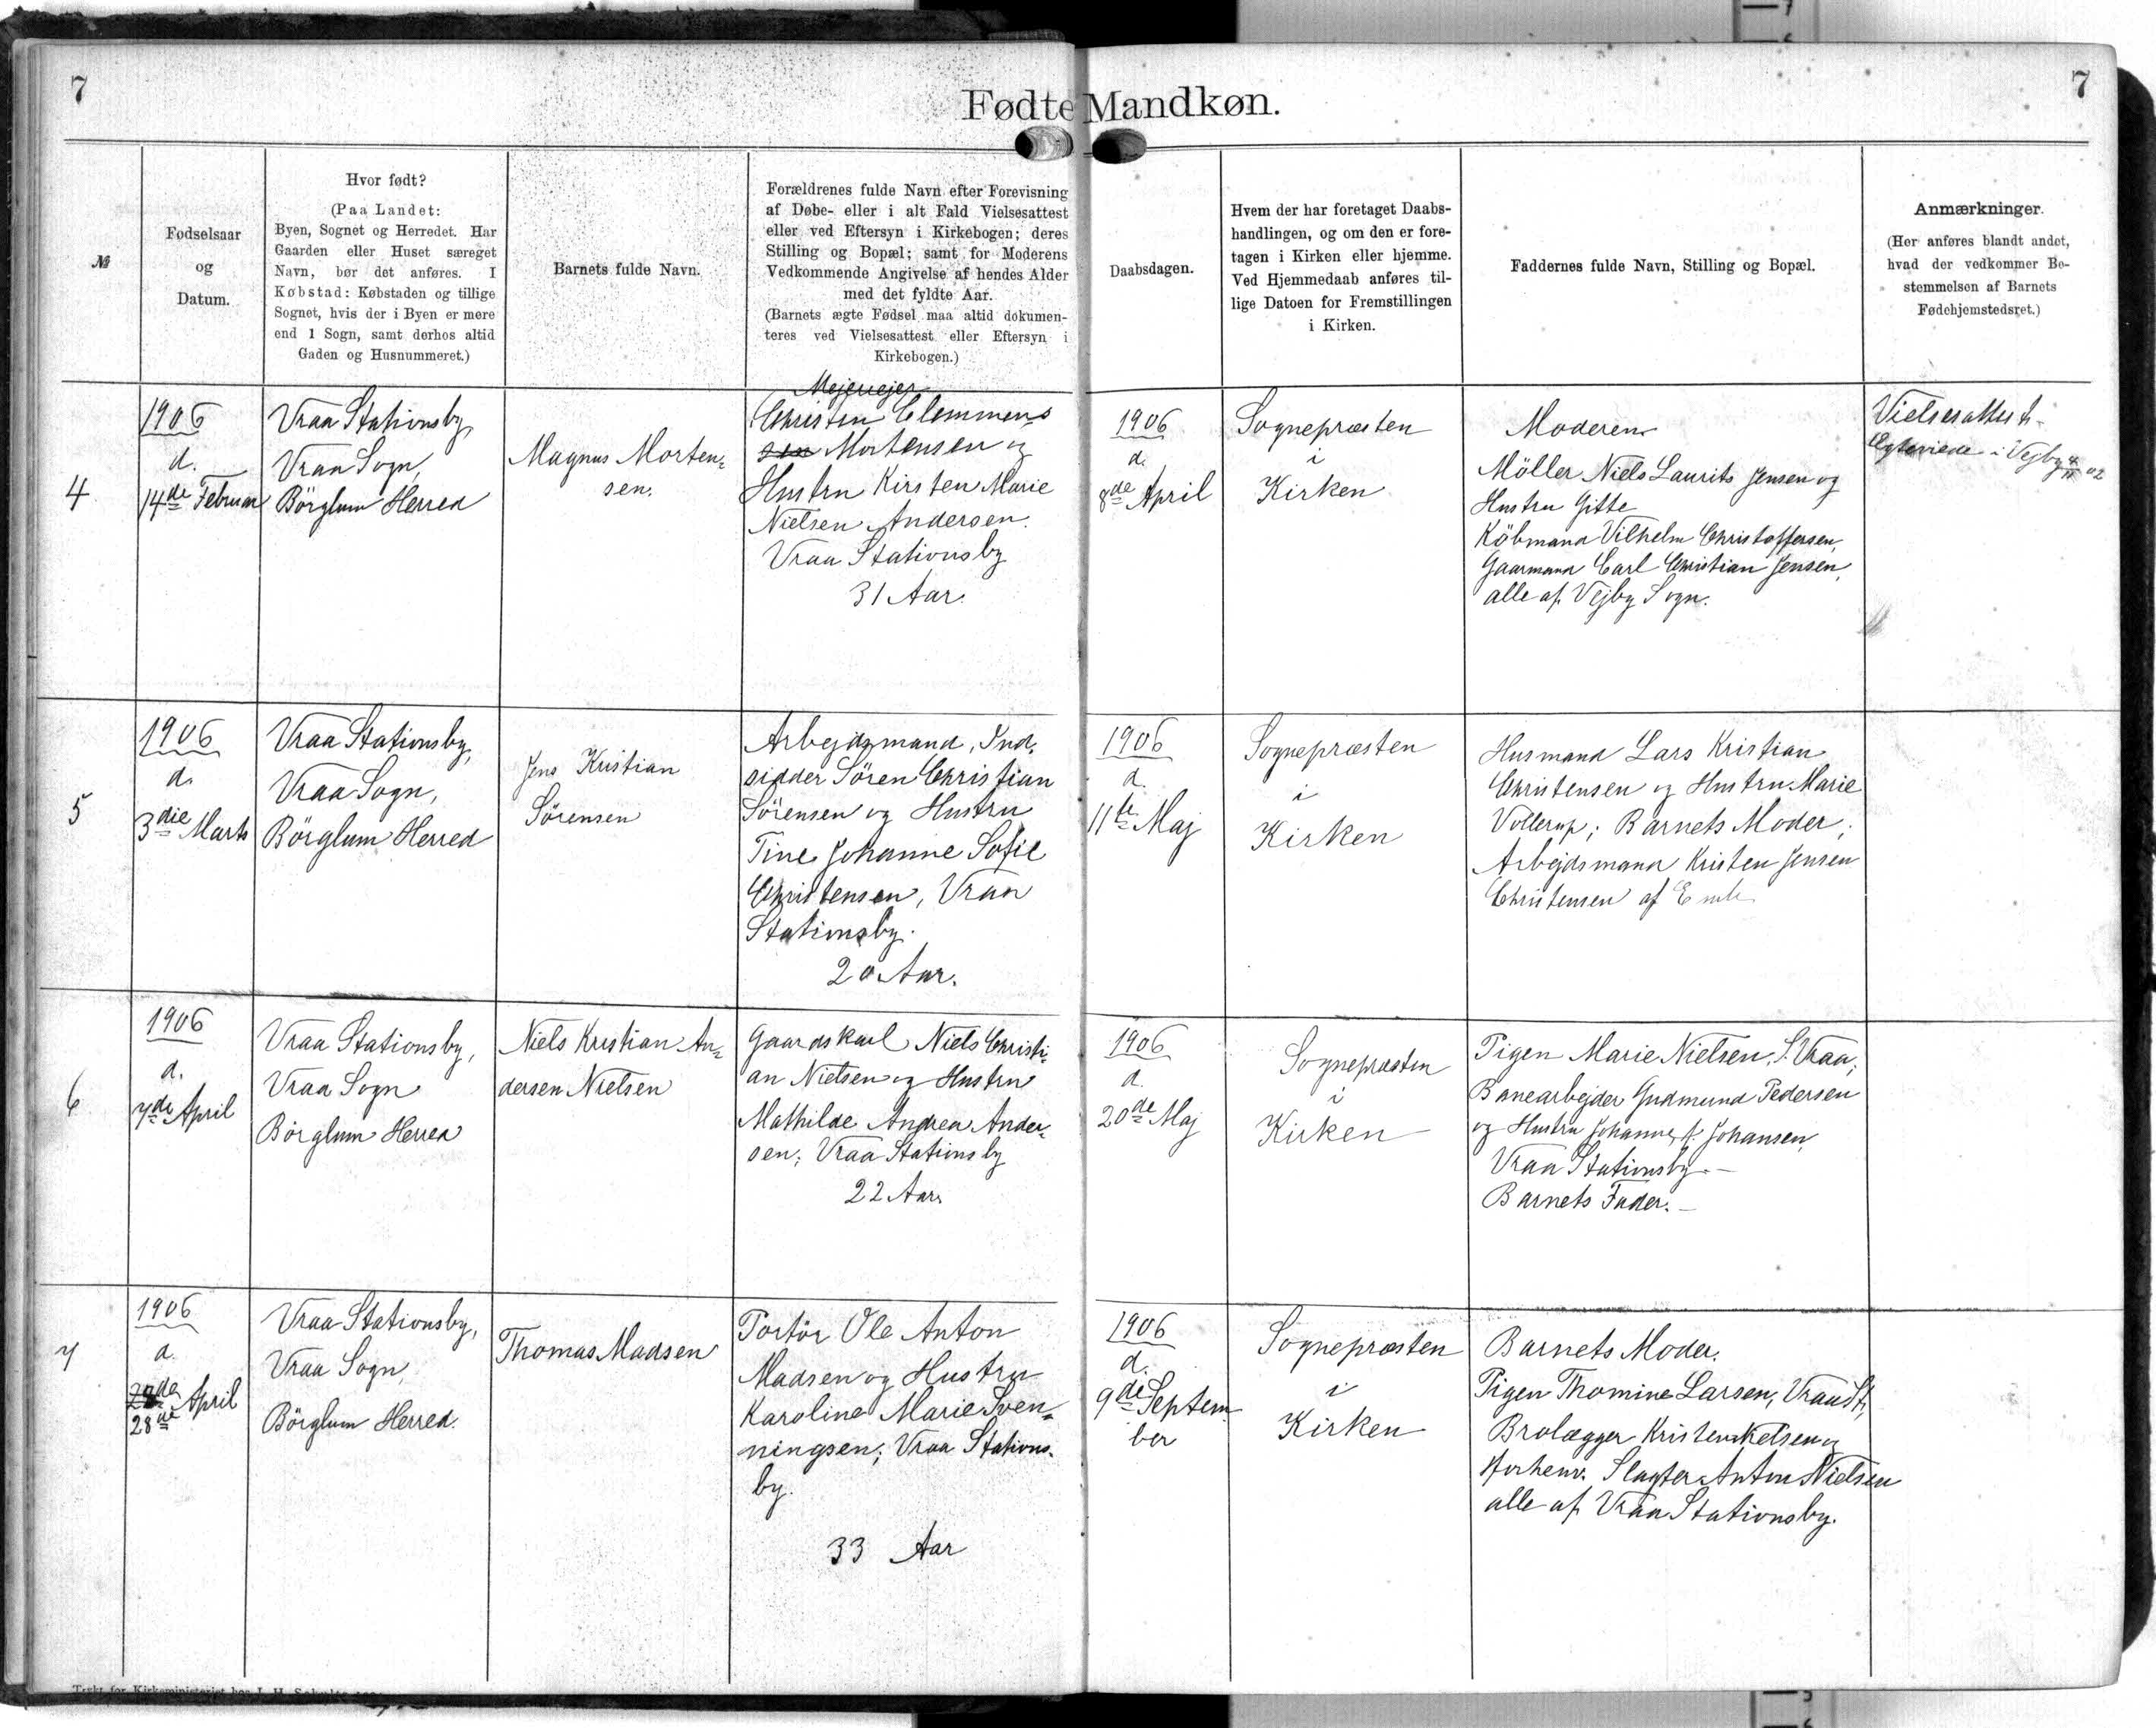 7
Fødte Mandkøn.
7
№
Fødselsaar
og
Datum.
Hvor født?
(Paa Landet:
Byen, Sognet og Herredet. Har
Gaarden eller Huset særeget
Navn, bør det anføres. I
Købstad: Købstaden og tillige
Sognet, hvis der i Byen er mere
end 1 Sogn, samt derhos altid
Gaden og Husnummeret.)
Barnets fulde Navn.
Forældrenes fulde Navn efter Forevisning
af Døbe- eller i alt Fald Vielsesattest
eller ved Eftersyn i Kirkebogen; deres
Stilling og Bopæl; samt for Moderens
Vedkommende Angivelse af hendes Alder
med det fyldte Aar.
(Barnets ægte Fødsel maa altid dokumen-
teres ved Vielsesattest eller Eftersyn i
Kirkebogen.)
Daabsdagen.
Hvem der har foretaget Daabs-
handlingen, og om den er fore-
tagen i Kirken eller hjemme.
Ved Hjemmedaab anføres til-
lige Datoen for Fremstillingen
i Kirken.
Faddernes fulde Navn, Stilling og Bopæl.
Anmærkninger.
(Her anføres blandt andet,
hvad der vedkommer Be-
stemmelsen af Barnets
Fødehjemstedsret.)
4
1906
d.
14de Februar
Vraa Stationsby,
Vraa Sogn,
Börglum Herred
Magnus Morten-
sen.
Mejeriejer
Christen Clemmens
sen Mortensen og
Hustru Kirsten Marie
Nielsen Andersen.
Vraa Stationsby
31 Aar.
1906
d.
8de April
Sognepræsten
i
Kirken
Moderen
Möller Niels Laurits Jensen og
Hustru Gitte
Köbmand Vilhelm Christoffersen,
Gaarmand Carl Christian Jensen,
alle af Vejby Sogn.
Vielsesattest.
Egteviede i Vejby 4/11 02
5
1906
d.
3die Marts
Vraa Stationsby,
Vraa Sogn,
Börglum Herred
Jens Kristian
Sørensen
Arbejdsmand, Ind-
sidder Sören Christian
Sörensen og Hustru
Tine Johanne Sofie
Christensen, Vraa
Stationsby.
20 Aar.
1906
d.
11te Maj
Sognepræsten
i
Kirken
Husmand Lars Kristian
Christensen og Hustru Marie
Vollerup; Barnets Moder;
Arbejdsmand Kristen Jensen
Christensen af
6
1906
d.
7de April
Vraa Stationsby,
Vraa Sogn
Börglum Herred
Niels Kristian An-
dersen Nielsen
Gaardskarl Niels Christi-
an Nielsen og Hustru
Mathilde Andrea Ander-
sen; Vraa Stationsby
22 Aar.
1906
d.
20de Maj
Sognepræsten
i
Kirken
Pigen Marie Nielsen, S. Vraa;
Banearbejder Gudmund Pedersen
og Hustru Johanne f. Johansen,
Vraa Stationsby. -
Barnets Fader. -
7
1906
d.
April
28de
Vraa Stationsby,
Vraa Sogn,
Börglum Herred.
Thomas Madsen
Portör Ole Anton
Madsen og Hustru
Karoline Marie Sven-
ningsen; Vraa Stations-
by.
33 Aar
1906
d.
9de Septem
ber
Sognepræsten
i
Kirken
Barnets Moder.
Pigen Thomine Larsen, Vraa St,
Brolægger Kristen Ketsen og
forhenv. Slagter Anton Nielsen
alle af Vraa Stationsby.